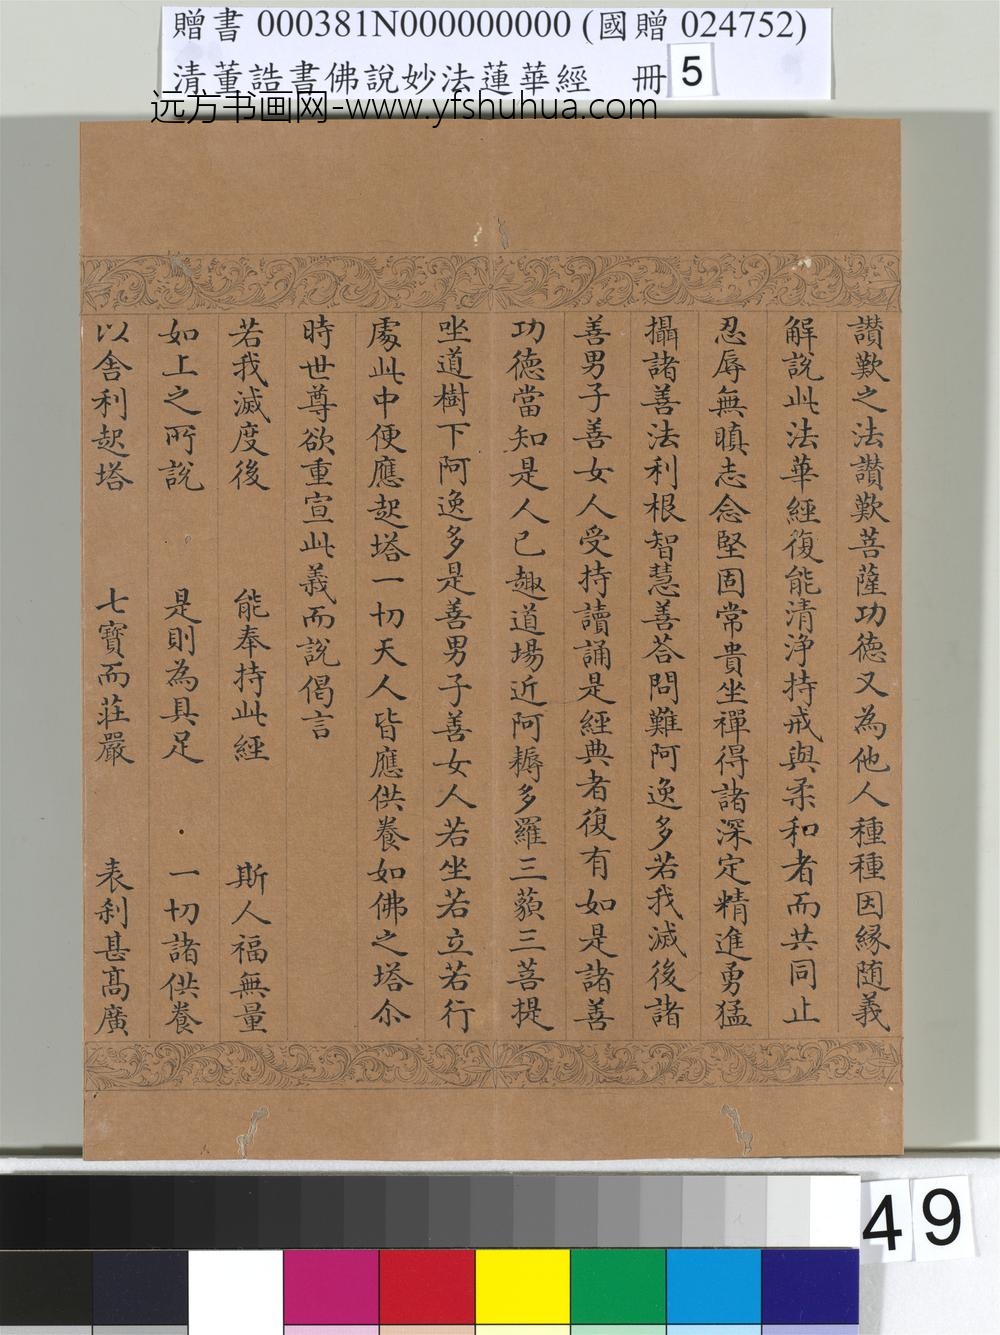 贈書 000381N000000000 (國贈 024752)
清董誥書佛說妙法蓮華經 冊 5
远方书画网-www.yfshuhua.com
讚歎之法讚歎菩薩功德又為他人種種因緣随義
解說此法華經復能清淨持戒與柔和者而共同止
忍辱無瞋志念堅固常貴坐禪得諸深定精進勇猛
攝諸善法利根智慧善荅問難阿逸多若我滅後諸
善男子善女人受持讀誦是經典者復有如是諸善
功德當知是人已趣道場近阿耨多羅三藐三菩提
坐道樹下阿逸多是善男子善女人若坐若立若行
處此中便應起塔一切天人皆應供養如佛之塔尒
時世尊欲重宣此義而說偈言
若我滅度後 能奉持此經 斯人福無量
如上之所說 是則為具足 一切諸供養
以舍利起塔 七寶而莊嚴 表刹甚高廣
49